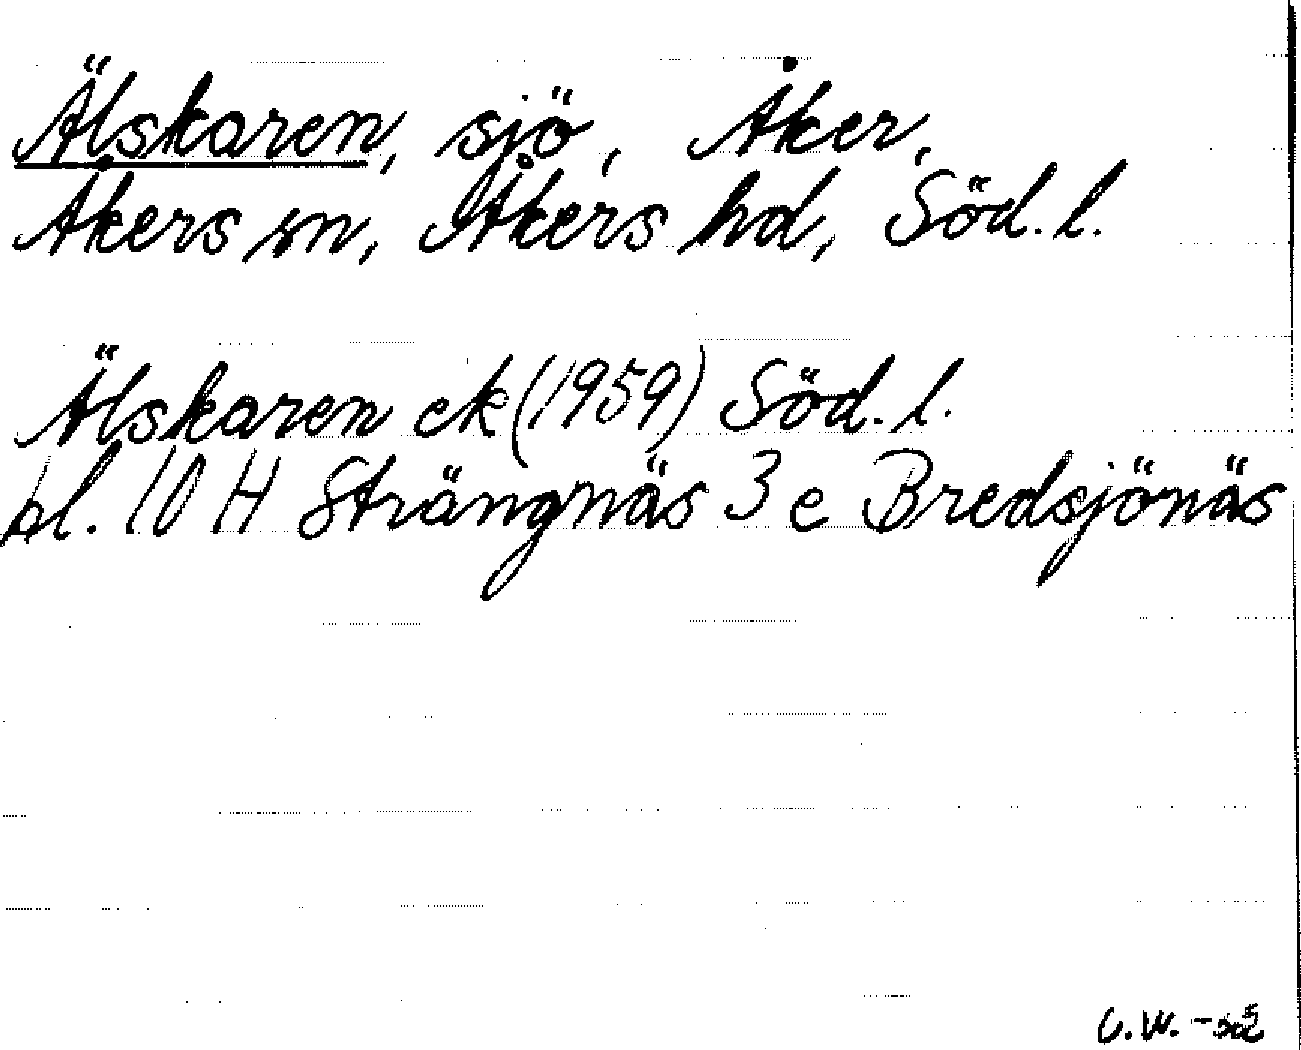 Älskaren, sjö, Åker,
Åkers sn, Åkers hd, Söd. l.
Älskaren ek (1959) Söd. l.
bl. 10 H Strängnäs 3 e Bredsjönäs
C.W. -